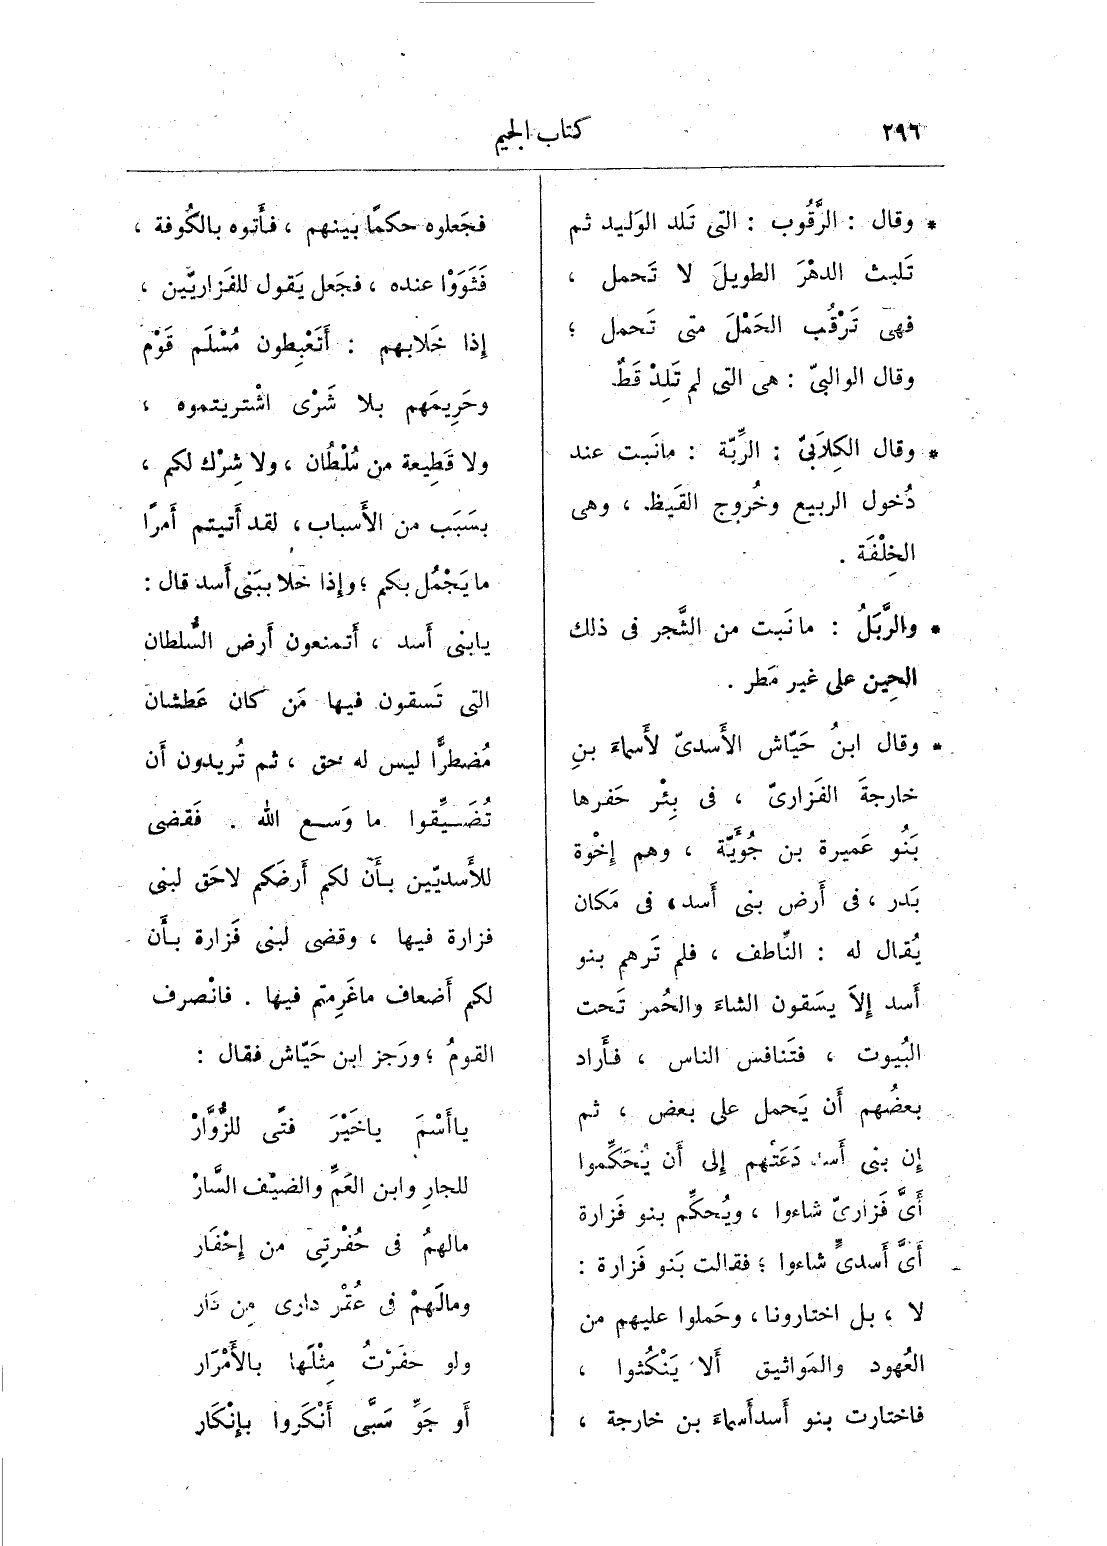 ٢٩٦
كتاب الجيم
* وقال : الرَّقُوب : التى تَلد الوَليد ثم
تَلبث الدهْرَ الطويلَ لا تَحمل ،
فهى تَرْقُب الحَمْلَ متى تَحمل ؛
وقال الوالبىّ : هى التى لم تَلِدْ قَطّ.
* وقال الكِلَابىّ : الرِّبّة : مانَبت عند
دُخول الربيع وخُروج القَيظ ، وهى
الخِلْفَة .
* والرَّبَلُ : مانَبت من الشَّجر فى ذلك
الحِين على غير مَطر .
* وقال ابنُ حَيّاش الأَسدىّ لأَسماءَ بنِ
خارجةَ الفَزارىّ ، فى بِئْر حَفرها
بَنُو عَميرة بن جُوَيَّة ، وهم إِخْوة
بَدر ، فى أَرض بنى أَسد ، فى مَكان
يُقال له : النَّاطف ، فلم تَرهم بنو
أَسد إِلاَّ يسَقون الشاءَ والحُمر تَحت
البُيوت ، فتَنافس الناس ، فأَراد
بعضُهم أَن يَحمل على بعض ، ثم
إِن بنى أَسد دَعَتْهم إِلى أَن يُحَكِّموا
أَىَّ فَزارىّ شاءوا ، ويُحكِّم بنو فَزارة
أَىَّ أَسدىٍّ شاءوا ؛ فقالت بَنو فَزارة :
لا ، بل اختارونا ، وحَملوا عليهم من
العُهود والمَواثيق أَلا يَنْكُثوا ،
فاختارت بنو أَسد أَسماءَ بن خارجة ،
فجَعلوه حكمًا بينهم ، فأَتوه بالكُوفة ،
فَثَوَوْا عنده ، فجَعل يَقول للفَزاريّين ،
إِذا خَلابهم : أَتَغْبِطون مُسْلَم قَوْم
وحَرِيمَهم بلا شَرْى اشْتريتموه ،
ولا قَطِيعة من سُلْطُان ، ولا شِرْك لكم ،
بسَبَب من الأَسباب ، لقد أَتيتم أَمرًا
ما يَجْمُل بكم ؛ وإِذا خلا ببَنى أَسد قال :
يابنى أَسد ، أَتمنعون أَرض السُّلطان
التى تَسقون فيها مَن كان عَطشان
مُضطرًّا ليس له حق ، ثم تُريدون أَن
تُضَيِّقوا ما وَسع الله . فَقضى
للأَسديّين بأَن لكم أَرضَكم لاحَق لبنى
فزارة فيها ، وقضى لبنى فَزارة بأَن
لكم أَضعاف ماغَرِمتم فيها . فانْصرف
القومُ ؛ ورَجز ابن حَيّاش فقال :
ياأَسْمَ ياخَيْرَ فتًى للزُّوَّارْ
للجارِ وابن العَمِّ والضيْف السَّارْ
مالهمُ فى حُفْرتِى من إِحْفَار
ومالَهمْ فى عُقْر دارى مِن دَار
ولو حفَرْتُ مِثْلَها بالأَمْرَار
أَو جَوِّ سَبَّى أَنْكَروا بإِنْكَار